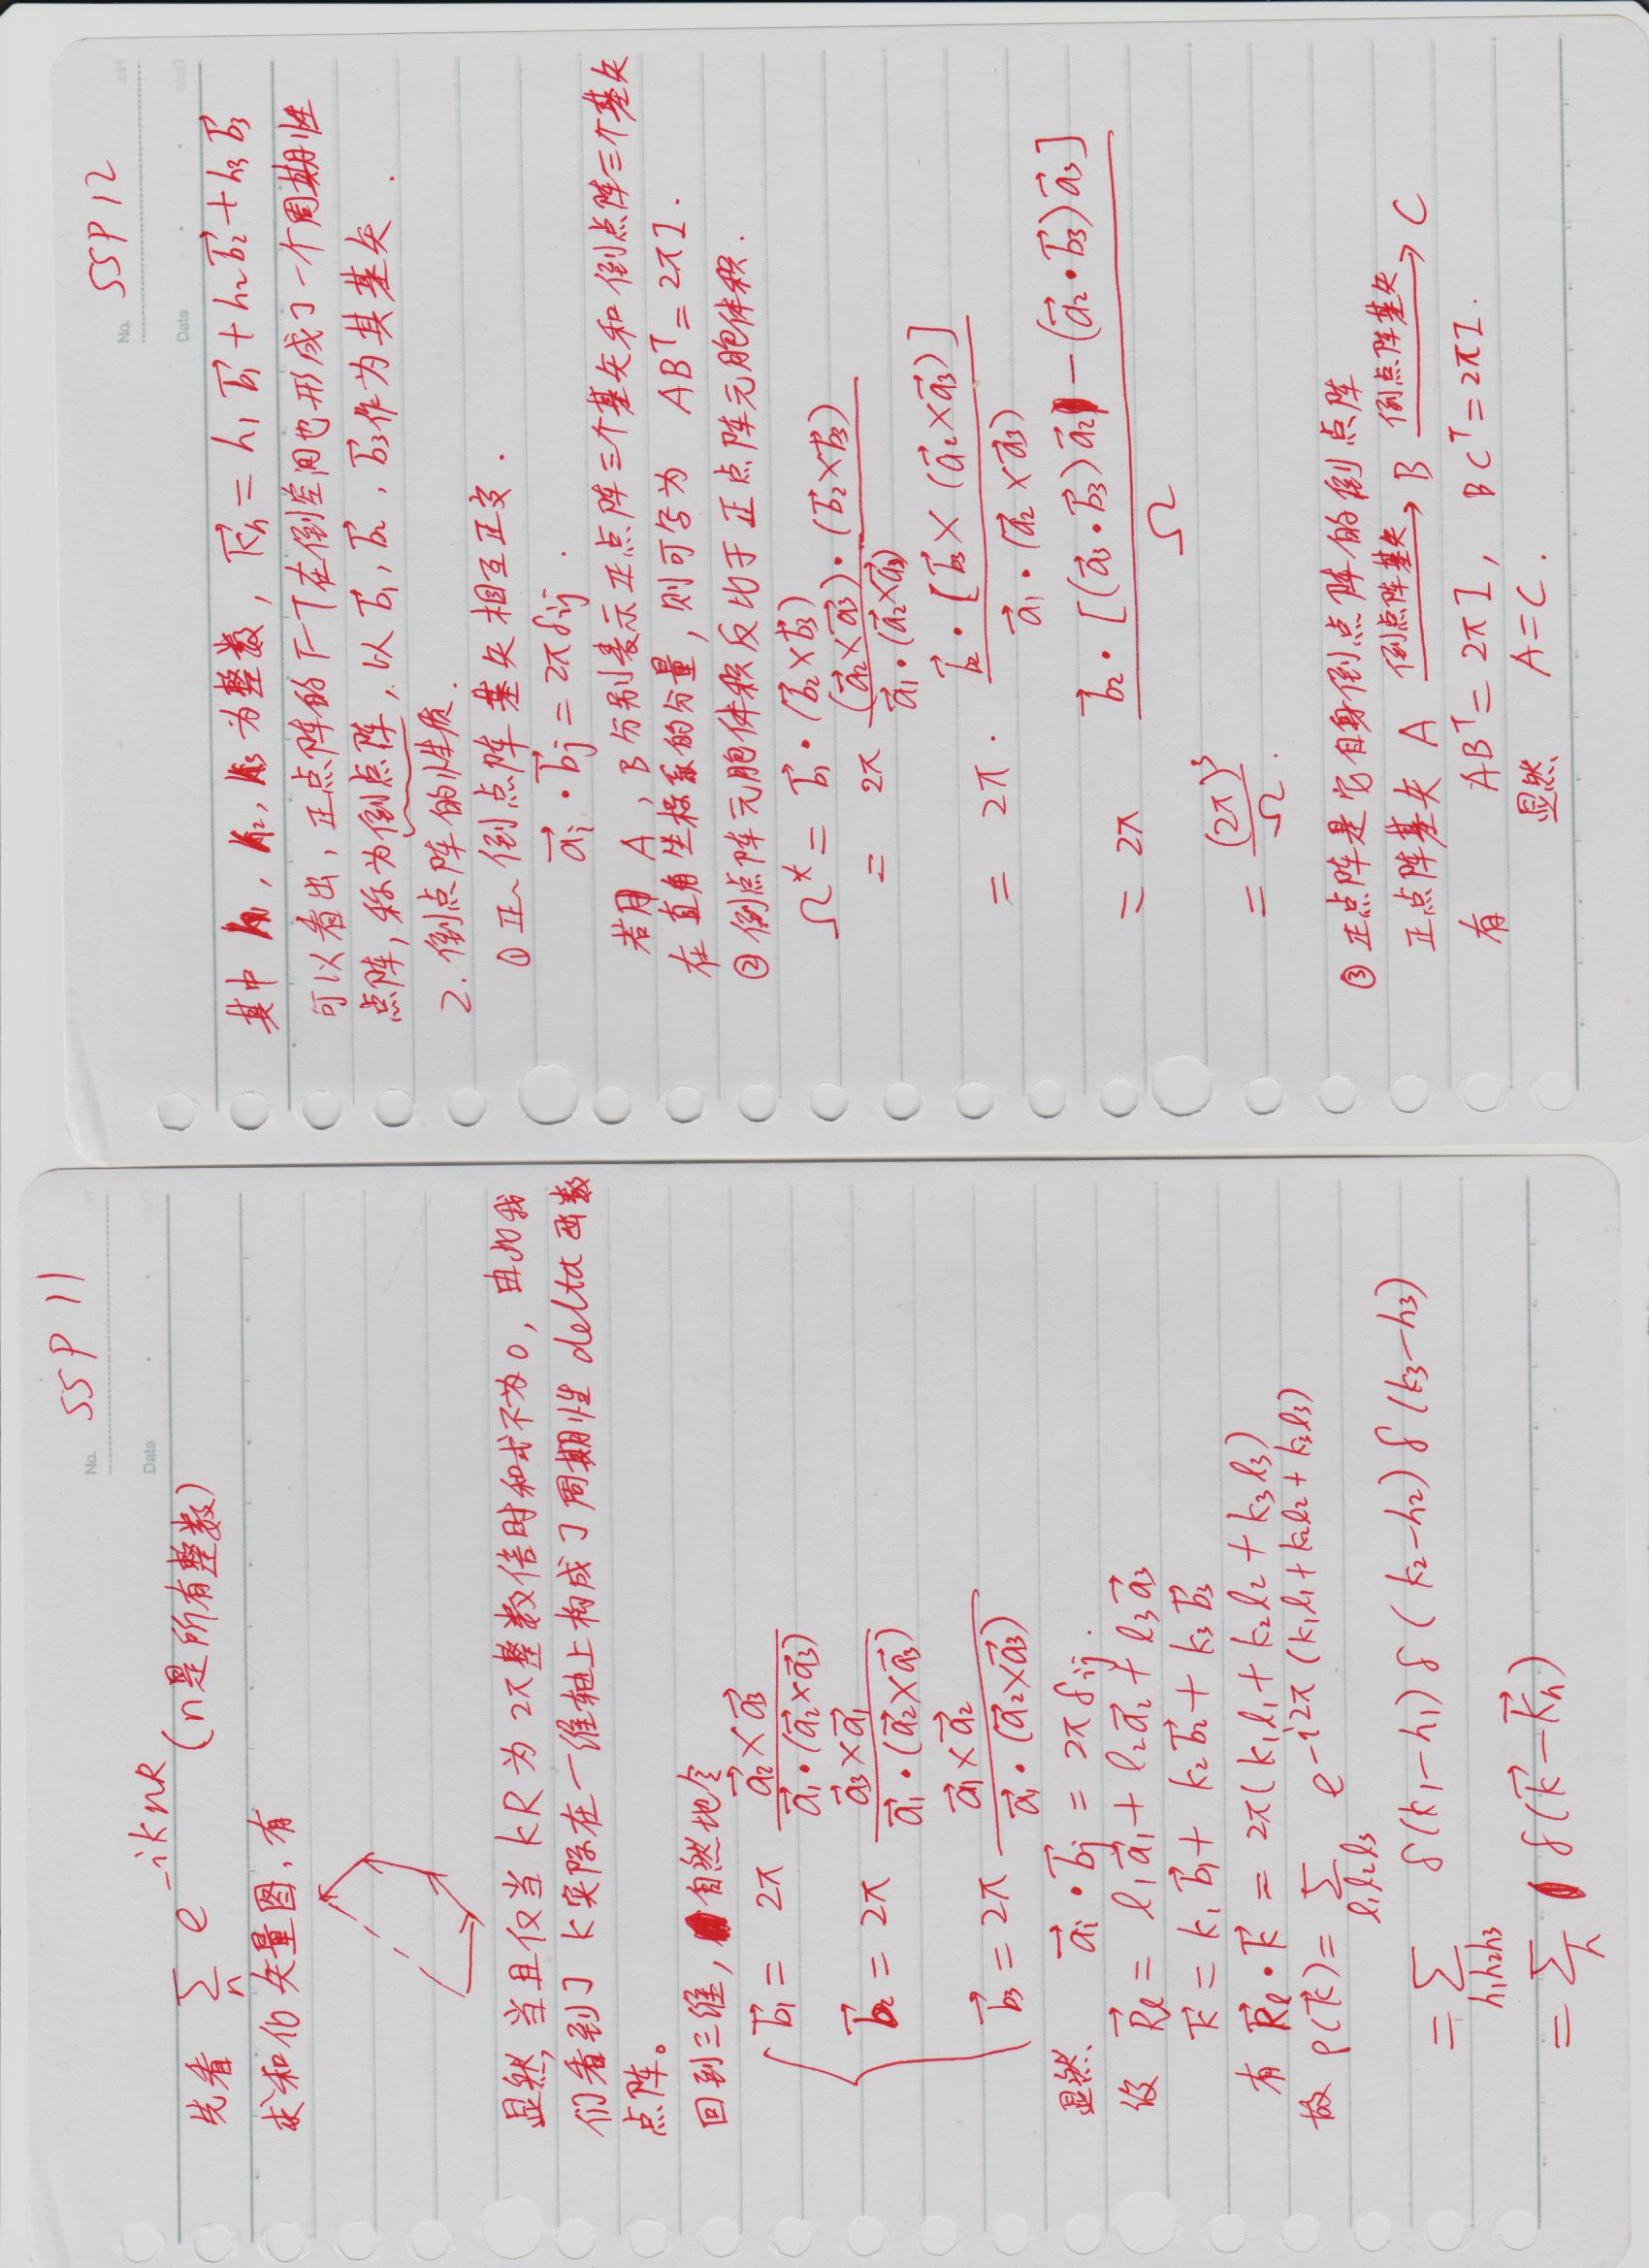 No. SSP 11
Date
先看 Σ_n e^{-iknR} (n是所有整数)
求和的矢量图,有
显然,当且仅当 kR 为 2π整数倍时和式不为0,由此我
们看到了 k实际在一维轴上构成了周期性 delta 函数
点阵。
回到三维,自然地令
b⃗1 = 2π (a⃗2×a⃗3) / (a⃗1·(a⃗2×a⃗3))
b⃗2 = 2π (a⃗3×a⃗1) / (a⃗1·(a⃗2×a⃗3))
b⃗3 = 2π (a⃗1×a⃗2) / (a⃗1·(a⃗2×a⃗3))
显然 a⃗i·b⃗j = 2πδij.
设 R⃗ℓ = ℓ1a⃗1 + ℓ2a⃗2 + ℓ3a⃗3
k⃗ = k1b⃗1 + k2b⃗2 + k3b⃗3
有 R⃗ℓ·k⃗ = 2π(k1ℓ1 + k2ℓ2 + k3ℓ3)
故 ρ(k⃗) = Σ_{ℓ1ℓ2ℓ3} e^{-i2π(k1ℓ1+k2ℓ2+k3ℓ3)}
= Σ_{h1h2h3} δ(k1-h1)δ(k2-h2)δ(k3-h3)
= Σ_h δ(k⃗-K⃗h)
No. SSP 12
Date
其中 h1, h2, h3 为整数, K⃗h = h1b⃗1 + h2b⃗2 + h3b⃗3
可以看出,正点阵的FT在倒空间也形成了一个周期性
点阵,称为倒点阵,以 b⃗1, b⃗2, b⃗3作为其基矢.
2. 倒点阵的性质.
① 正、倒点阵基矢相互正交.
a⃗i·b⃗j = 2πδij.
若用 A, B分别表示正点阵三个基矢和倒点阵三个基矢
在直角坐标系的分量,则可写为 ABᵀ = 2πI.
② 倒点阵元胞体积反比于正点阵元胞体积.
Ω* = b⃗1·(b⃗2×b⃗3)
= 2π ((a⃗2×a⃗3)·(b⃗2×b⃗3)) / (a⃗1·(a⃗2×a⃗3))
= 2π· (b⃗2·[b⃗3×(a⃗2×a⃗3)]) / (a⃗1·(a⃗2×a⃗3))
= 2π (b⃗2·[(a⃗3·b⃗3)a⃗2 - (a⃗2·b⃗3)a⃗3]) / Ω
= (2π)³ / Ω.
③ 正点阵是它自身倒点阵的倒点阵
正点阵基矢 A —倒点阵基矢→ B —倒点阵基矢→ C
有 ABᵀ = 2πI, BCᵀ = 2πI.
显然 A = C.